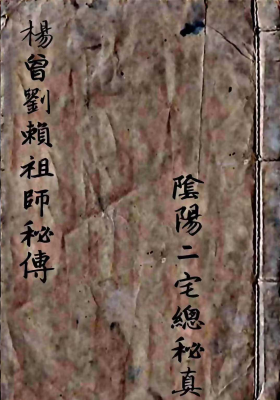 陰陽二宅總秘真
楊曾劉賴祖師秘傳